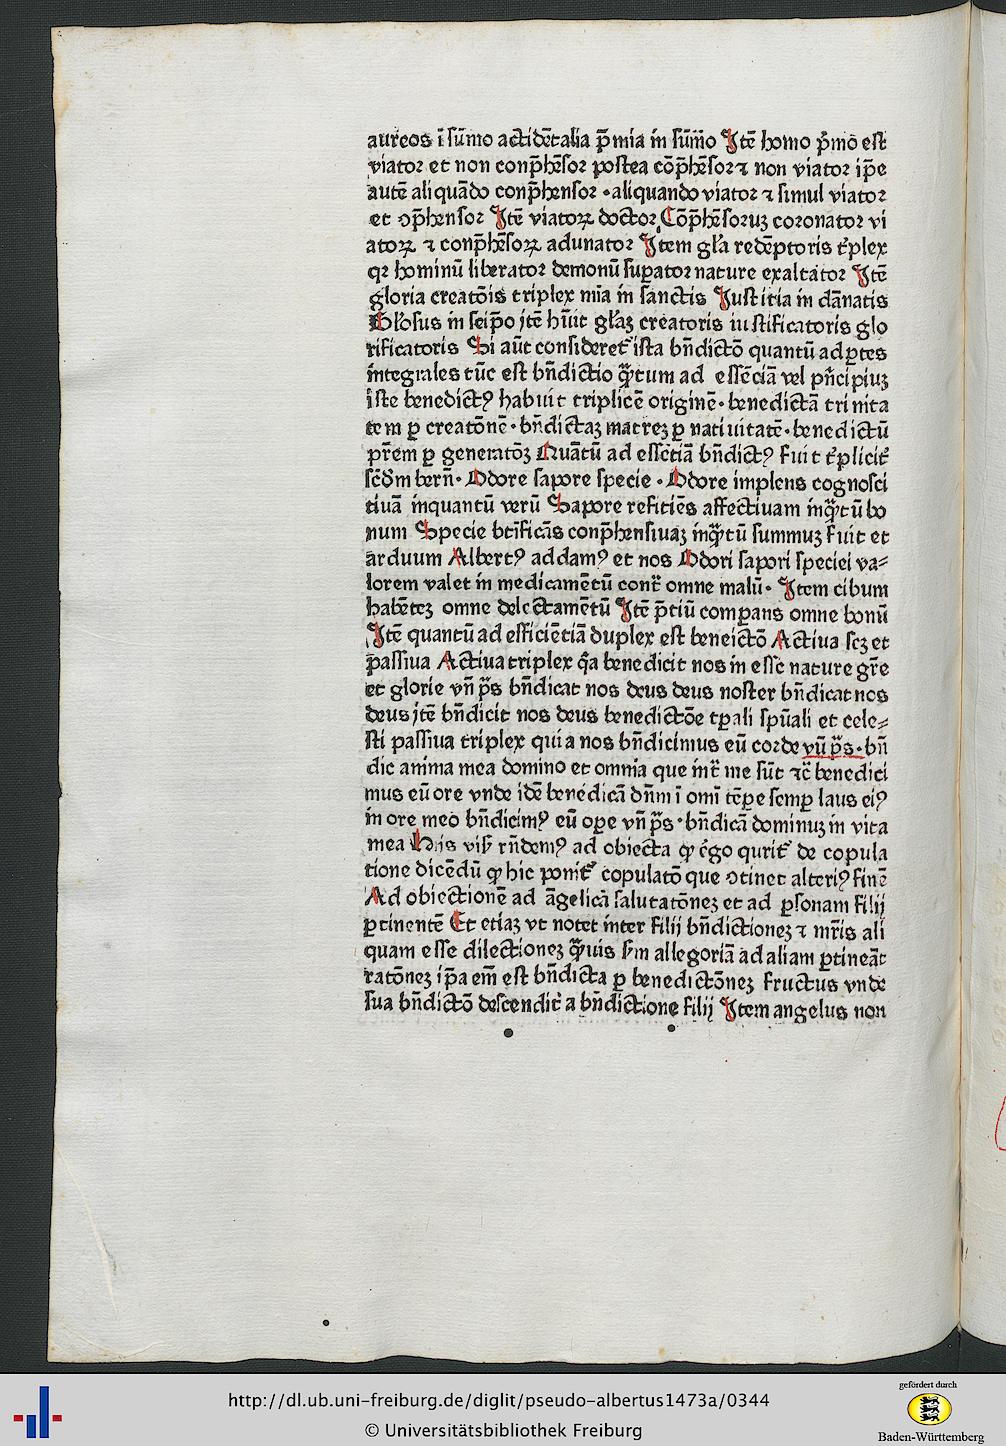 aureos ī sūmo actidētalia p̄mia in sūmo Itē homo pͥmo est
viator et non conp̄hēsor postea cōp̄hēsor ⁊ non viator ip̄e
autē aliquādo conp̄hensor · aliquando viator ⁊ simul viator
et ꝯp̄hensor Itē viatorꝝ doctor Cōp̄hēsoruꝫ coronator vi
atorꝝ ⁊ conp̄hēsorꝝ adunator Item gl̄a redēptoris tͥplex
qꝛ hominū liberator demonū suꝑator nature exaltator Itē
gloria creatōis triplex mīa in sanctis Iusticia in dānatis
Gl̄osus in seip̄o itē hūit gl̄aꝫ creatoris iustificatoris glo
rificatoris Si aūt consideret᷑ ista bn̄dictō quantū ad ꝑtes
integrales tūc est bn̄dictio qᷓꝫtum ad essēciā vel pͥncipiuꝫ
iste benedictꝰ habuit triplicē originē · benedictā trinita
tem ꝑ creatōnē · bn̄dictaꝫ matreꝫ ꝑ natiuitatē · benedictū
pr̄em ꝑ generatōꝫ Quātū ad essētiā bn̄dictꝰ fuit tͥplicit᷑
scd̄m bern̄ · Odore sapore specie · Odore implens cognosci
tiuā inquantū verū Sapore reficiēs affectiuam inqᷓꝫtū bo
num Specie btīficās conp̄hensiuaꝫ inqᷓꝫtū summuꝫ fuit et
arduum Albertꝰ addamꝰ et nos Odori sapori speciei va⸗
lorem valet in medicamētū contᷓ omne malū · Item cibum
habēteꝫ omne delectamētū Itē p̄tiū comꝑans omne bonū
Itē quantū ad efficiētiā duplex est beneictō Actiua scꝫ et
passiua Actiua triplex qͣ benedicit nos in esse nature gr̄e
et glorie vn̄ pͥs bn̄dicat nos deus deus noster bn̄dicat nos
deus itē bn̄dicit nos deus benedictōe tꝑali spūali et cele⸗
sti passiua triplex quia nos bn̄dicimus eū corde vn̄ pͥs · bn̄
dic anima mea domino et omnia que intᷓ me sūt ⁊c̄ benedici
mus eū ore vnde idē benedicā dn̄m ī omī tēpe semꝑ laus eiꝰ
in ore meo bn̄dicimꝰ eū oꝑe vn̄ pͥs · bn̄dicā dominuꝫ in vita
mea Hiis visͥ rn̄demꝰ ad obiecta ꝙ ergo qurit᷑ de copula
tione dicēdū ꝙ hic ponit᷑ copulatō que ꝯtinet alteriꝰ finē
Ad obiectionē ad āgelicā salutatōneꝫ et ad ꝑsonam filij
ꝑtinentē Et etiaꝫ vt notet inter filij bn̄dictioneꝫ ⁊ mr̄is ali
quam esse dilectioneꝫ qᷓꝫuis sͥm allegoriā ad aliam ꝑtineāt
ratōneꝫ ip̄a em̄ est bn̄dicta ꝑ benedictōneꝫ fructus vnde
sua bn̄dictō descendit a bn̄dictione filij Item angelus non
http://dl.ub.uni-freiburg.de/diglit/pseudo-albertus1473a/0344
© Universitätsbibliothek Freiburg
gefördert durch
Baden-Württemberg